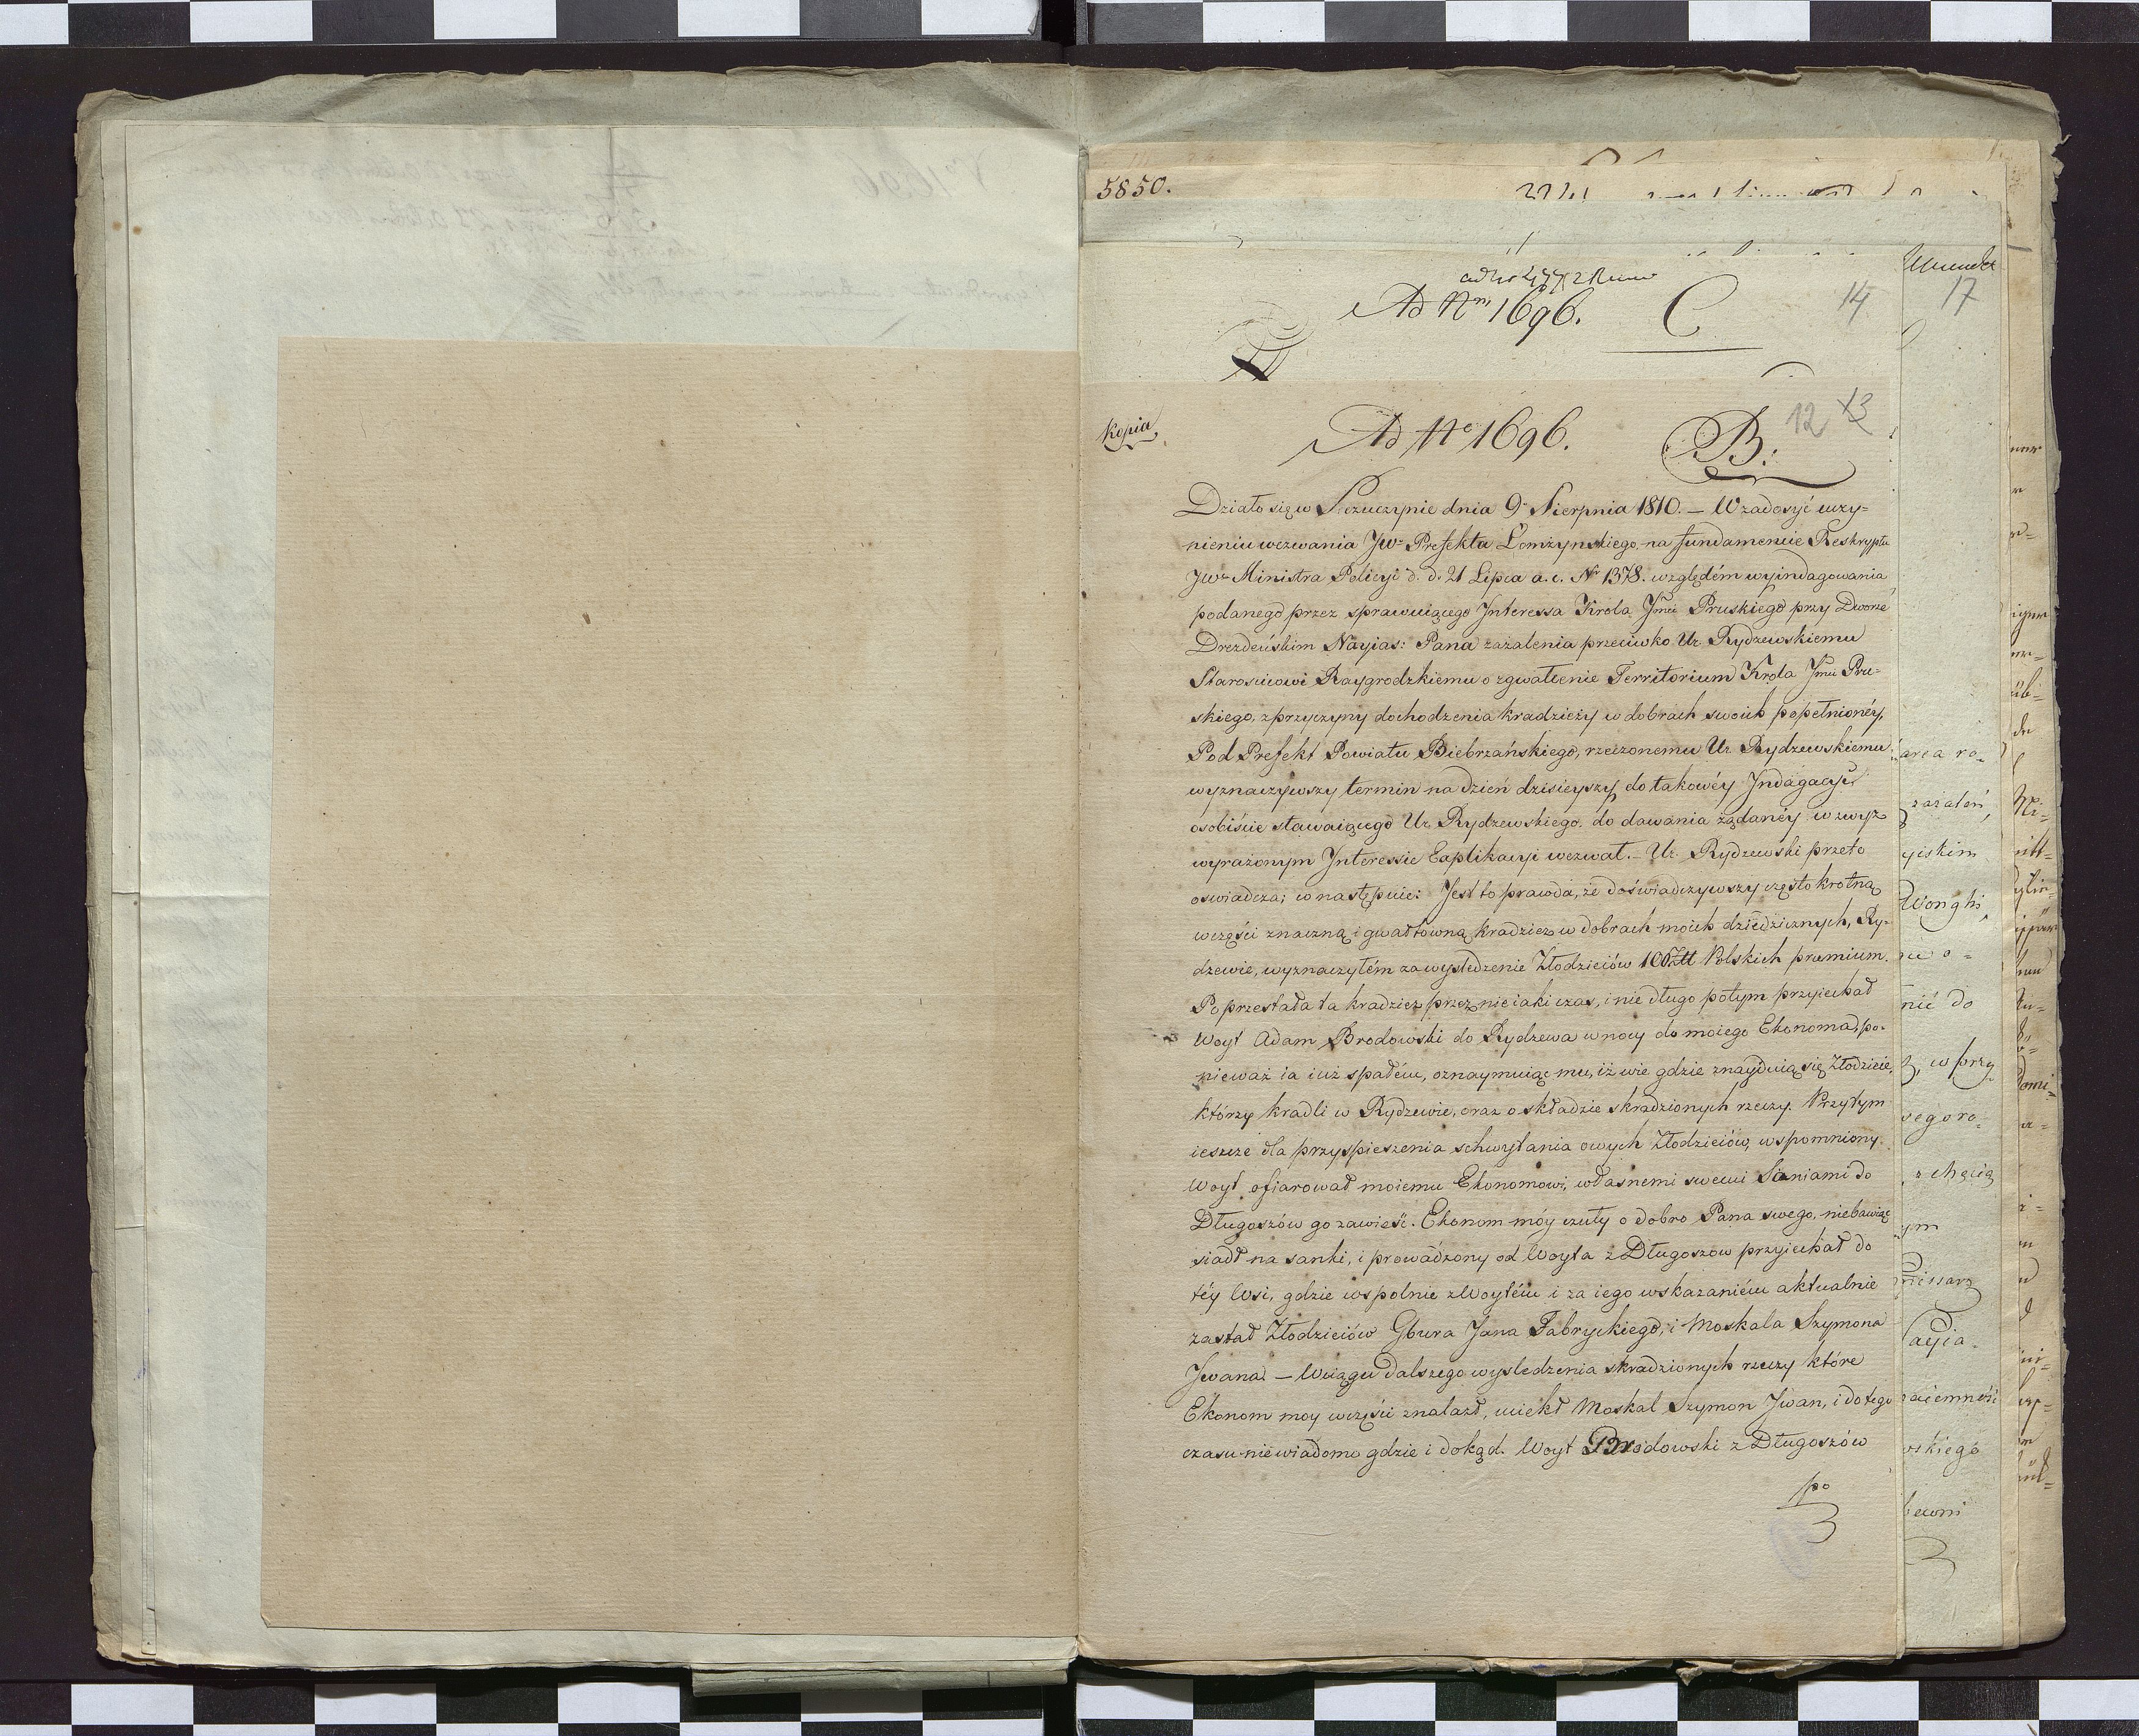 5850.
Ad Nm 1696. C 14 17
Kopia Ad No 1696. B: 12 13
Działo się w Szczuczynie dnia 9o Sierpnia 1810. — W zadosyć uczy=
nieniu wezwania JWo Prefekta Łomżynskiego, na fundamencie Reskryptu
JWo Ministra Policyi d. d. 21 Lipca a. c. Nr 1378. względém wyindagowania
podanego przez sprawuiącego Interessa Króla Jmci Pruskiego przy Dworze
Drezdeńskim Nayias: Pana zażalenia przeciwko Ur. Rydzewskiemu
Starościcowi Raygrodzkiemu o zgwałcenie Territorium Króla Jmci Pru=
skiego, z przyczyny dochodzenia kradzieży w dobrach swoich popełnionéy,
Pod Prefekt Powiatu Biebrzańskiego, rzeczonemu Ur. Rydzewskiemu
wyznaczywszy termin na dzień dzisieyszy do takowéy Indagacyi
osobiście stawaiącego Ur. Rydzewskiego, do dawania żądanéy w zwyż
wyrażonym Interessie Explikacyi wezwał. — Ur. Rydzewski przeto
oswiadcza; co następuie: Jest to prawda, że doświadczywszy częstokrotną
w części znaczną i gwałtowną kradzież w dobrach moich dziedzicznych, Ry-
dzewie, wyznaczyłém za wysledzenie Złodzieiów 100 Złł Polskich præmium.
Poprzestała ta kradzież przez nieiaki czas, i nie długo potym przyiechał
Woyt Adam Brodowski do Rydzewa w nocy do moiego Ekonoma, po-
nieważ ia iuż spałém, oznaymuiąc mu, iż wie gdzie znayduią się Złodzieie,
którzy kradli w Rydzewie, oraz o składzie skradzionych rzeczy. Przytym
ieszcze dla przyspieszenia schwytania owych Złodzieiów, wspomniony
Woyt ofiarował moiemu Ekonomowi, własnemi swemi Saniami do
Długoszów go zawieść. Ekonom móy czuły o dobro Pana swego, niebawiąc
siadł na sanki, i prowadzony od Woyta z Długoszów przyiechał do
téy Wsi, gdzie wspolnie z Woytém i za iego wskazaniém aktualnie
zastał Złodzieiów Gbura Jana Fabryckiego, i Moskala Szymona
Iwana. — W ciągu dalszego wysledzenia skradzionych rzeczy które
Ekonom moy w części znalazł, uciekł Moskal Szymon Iwan, i do tego
czasu niewiadomo gdzie i dokąd. Woyt Brodowski z Długoszów
po